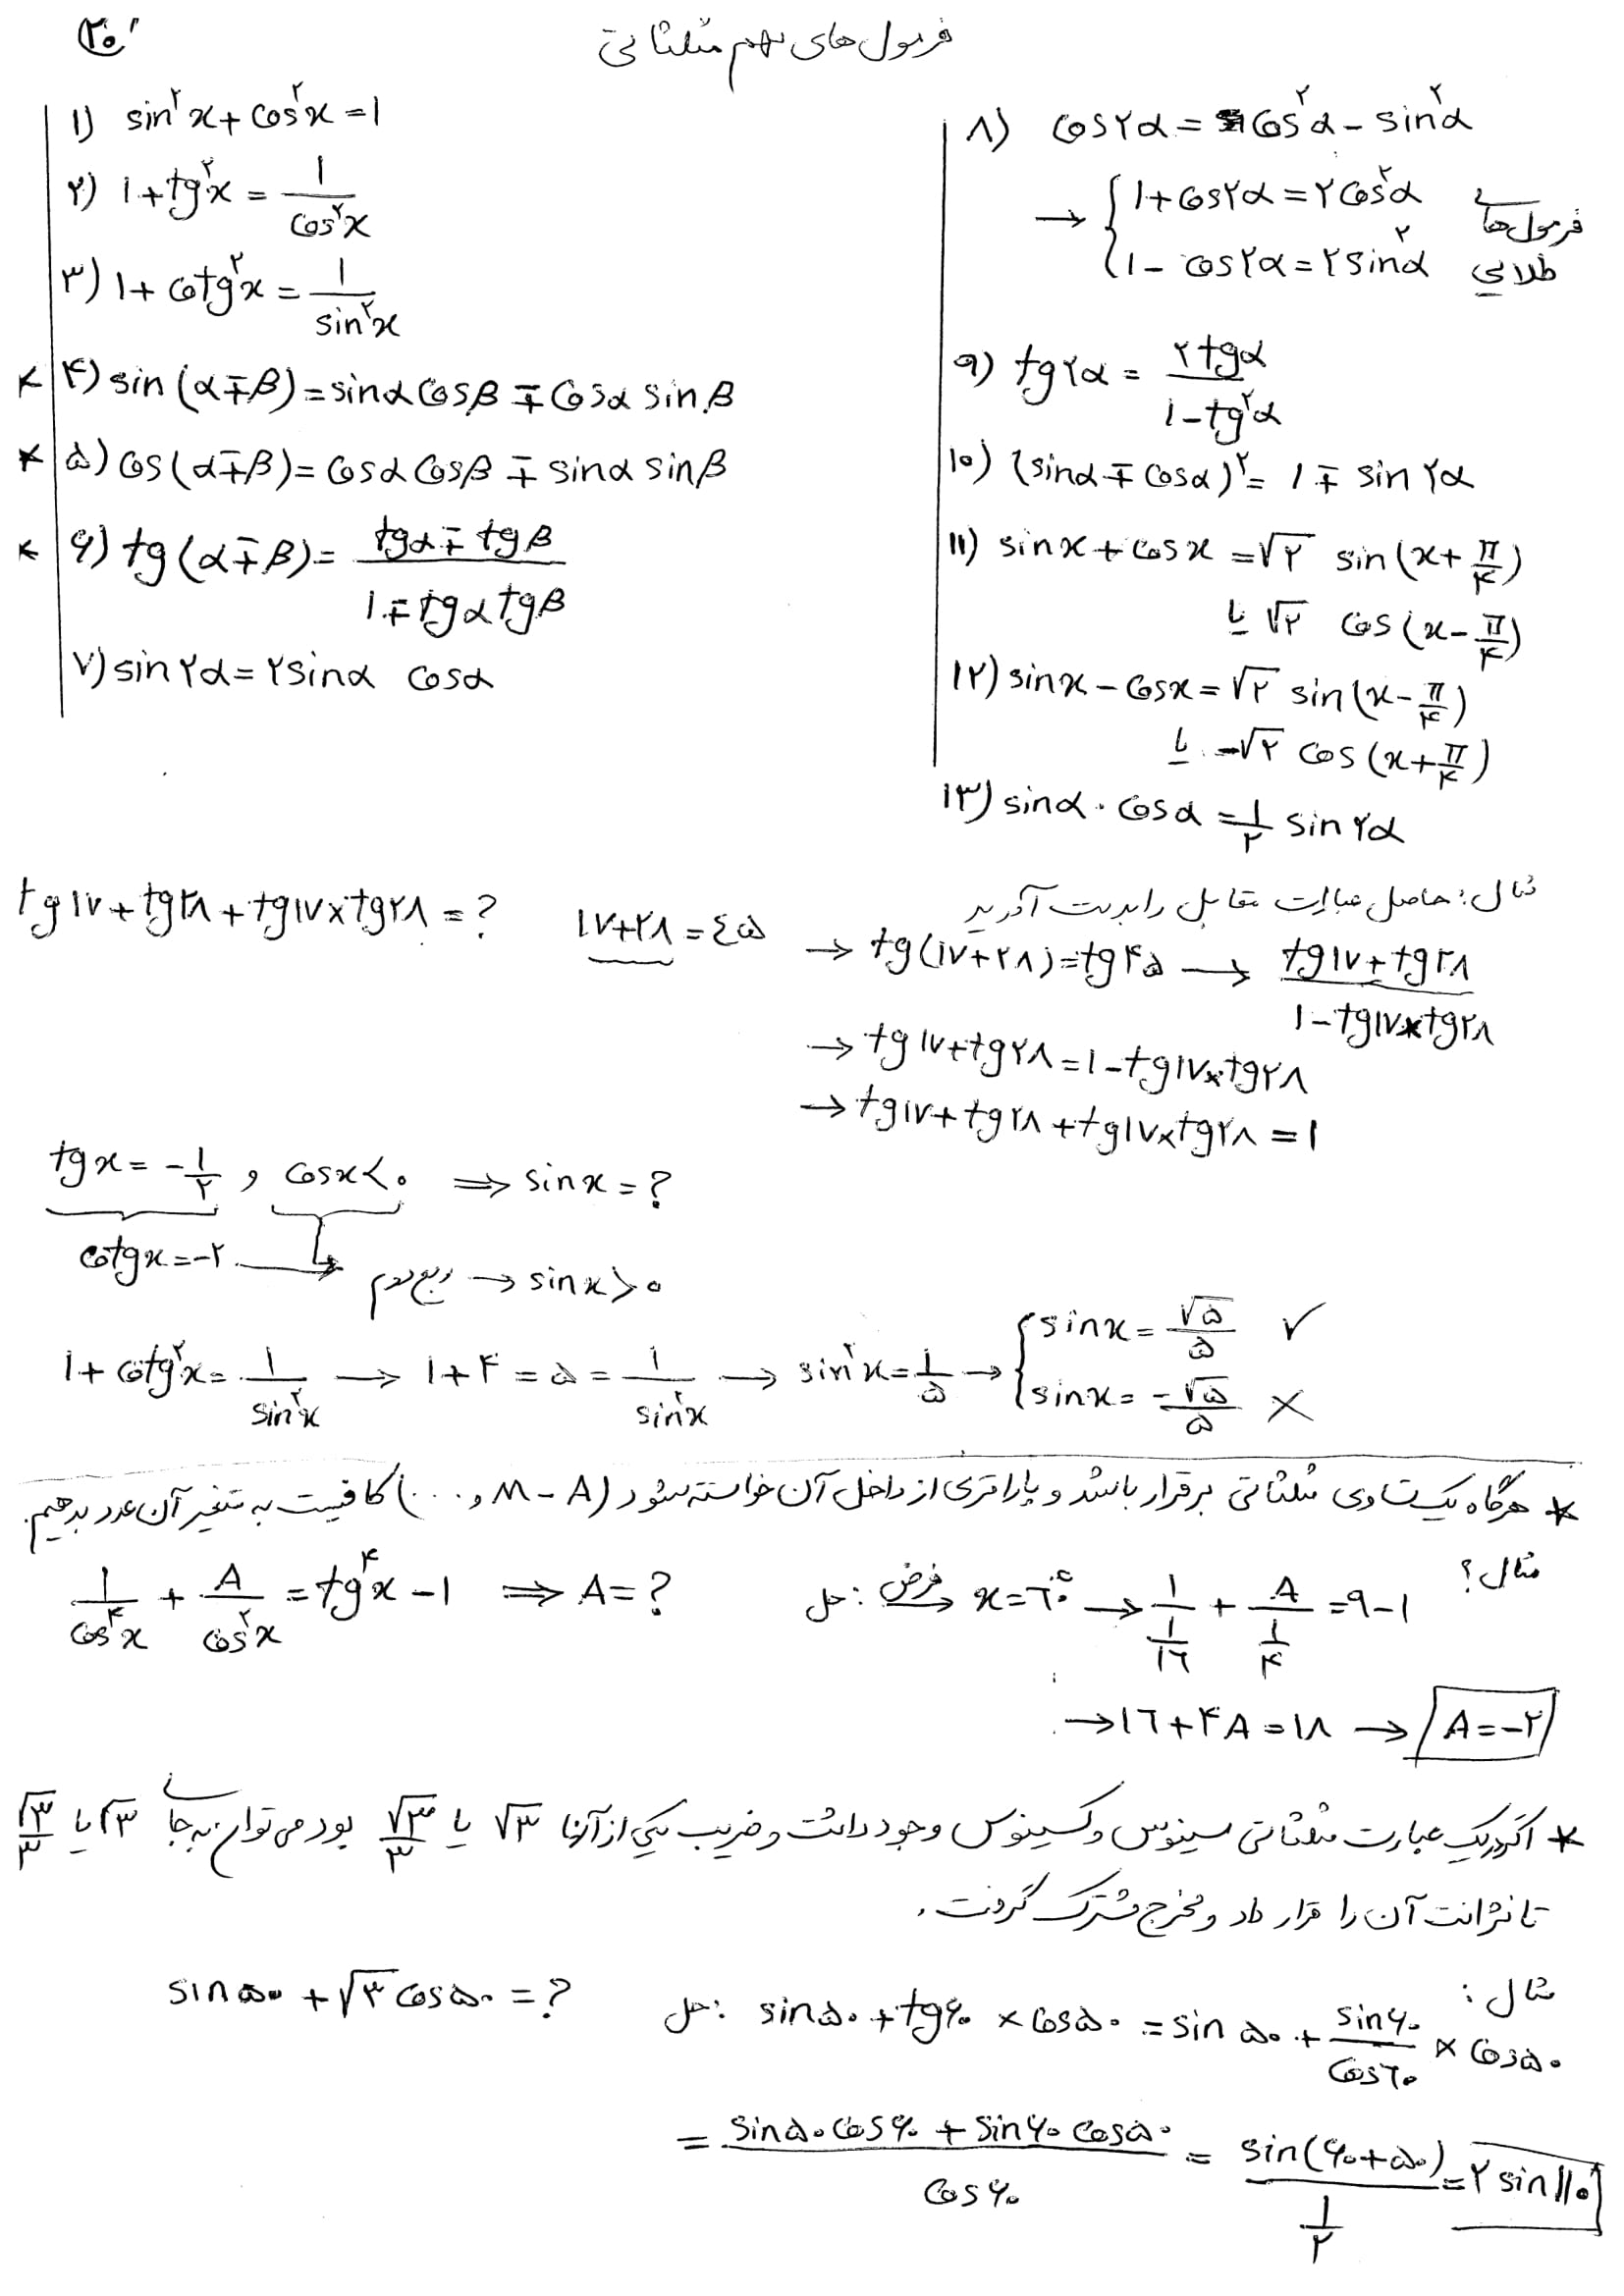 ۲۰
فرمول های مهم مثلثاتی
۱) sin²x + cos²x = ۱
۲) ۱ + tg²x = ۱/cos²x
۳) ۱ + cotg²x = ۱/sin²x
* ۴) sin(α∓β) = sinα cosβ ∓ cosα sinβ
* ۵) cos(α∓β) = cosα cosβ ∓ sinα sinβ
* ۶) tg(α∓β) = (tgα ∓ tgβ)/(۱ ∓ tgα tgβ)
۷) sin۲α = ۲sinα cosα
۸) cos۲α = cos²α − sin²α
→ { ۱ + cos۲α = ۲cos²α
۱ − cos۲α = ۲sin²α
فرمول های
طلایی
۹) tg۲α = ۲tgα/(۱ − tg²α)
۱۰) (sinα ∓ cosα)² = ۱ ∓ sin۲α
۱۱) sinx + cosx = √۲ sin(x + π/۴)
یا √۲ cos(x − π/۴)
۱۲) sinx − cosx = √۲ sin(x − π/۴)
یا −√۲ cos(x + π/۴)
۱۳) sinα . cosα = ۱/۲ sin۲α
مثال: حاصل عبارت مقابل را بدست آورید
tg۱۷ + tg۲۸ + tg۱۷ × tg۲۸ = ?
۱۷+۲۸ = ٤۵ → tg(۱۷+۲۸) = tg۴۵ → (tg۱۷ + tg۲۸)/(۱ − tg۱۷ × tg۲۸)
→ tg۱۷ + tg۲۸ = ۱ − tg۱۷ × tg۲۸
→ tg۱۷ + tg۲۸ + tg۱۷ × tg۲۸ = ۱
tgx = −۱/۲ و cosx < ۰ ⇒ sinx = ?
cotgx = −۲ → ربع دوم → sinx > ۰
۱ + cotg²x = ۱/sin²x → ۱ + ۴ = ۵ = ۱/sin²x → sin²x = ۱/۵ → { sinx = √۵/۵ ✓
sinx = −√۵/۵ ×
* هرگاه یک تساوی مثلثاتی برقرار باشد و پارامتری از داخل آن خواسته شود (M - A و ...) کافیست به متغیر آن عدد بدهیم.
مثال؟
۱/cos⁴x + A/cos²x = tg⁴x − ۱ ⇒ A = ?
حل: فرض x = ٦۰° → ۱/(۱/۱٦) + A/(۱/۴) = ۹ − ۱
→ ۱٦ + ۴A = ۱۸ → A = −۲
* اگر در یک عبارت مثلثاتی سینوس و کسینوس وجود داشت و ضریب یکی از آنها √۳ یا √۳/۳ بود می توان به جای √۳ یا √۳/۳
تانژانت آن را قرار داد و مخرج مشترک گرفت.
مثال:
sin۵۰ + √۳ cos۵۰ = ?
حل: sin۵۰ + tg۶۰ × cos۵۰ = sin۵۰ + sin۶۰/cos٦۰ × cos۵۰
= (sin۵۰ cos۶۰ + sin۶۰ cos۵۰)/cos۶۰ = sin(۶۰+۵۰)/(۱/۲) = ۲ sin۱۱۰